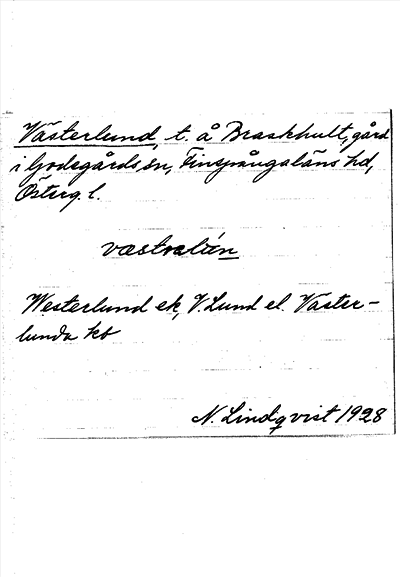 Västerlund, t. å Braskhult, gård
i Godegårds sn, Finspångaläns hd,
Österg. l.
væstrelún
Westerlund ek, V. Lund el. Väster-
lunda kb
N. Lindqvist 1928